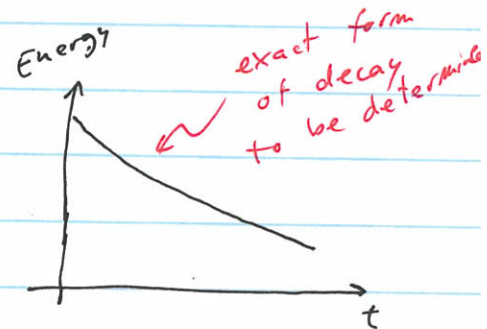 Energy
exact form
of decay
to be determined
t